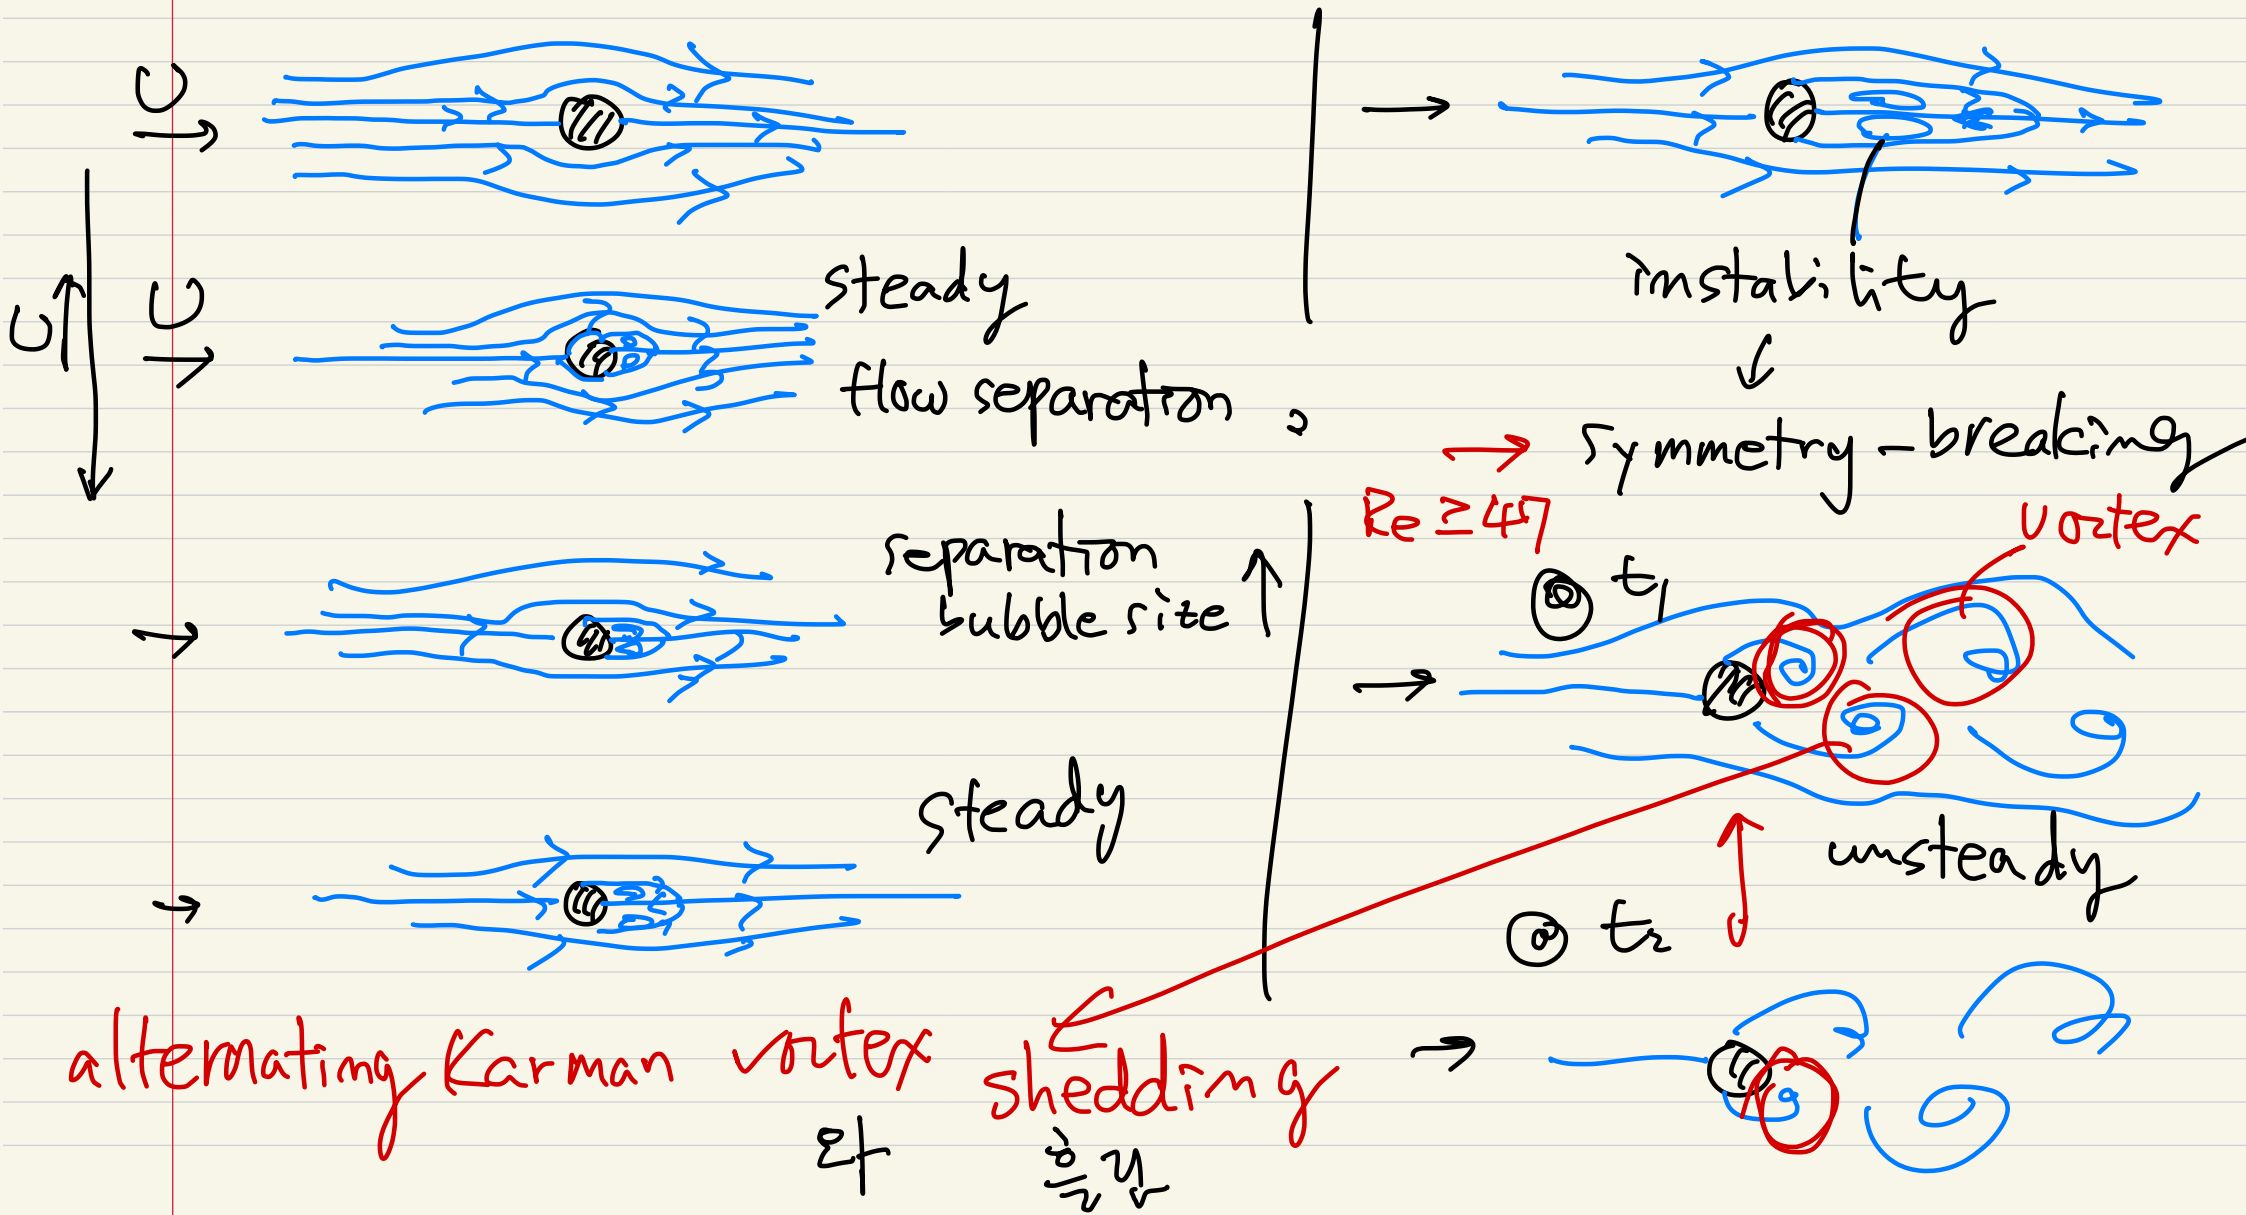 U
steady
U
U
flow separation
separation
bubble size
steady
instability
symmetry-breaking
Re ≥ 47
vortex
@ t1
unsteady
@ t2
alternating Karman vortex shedding
와